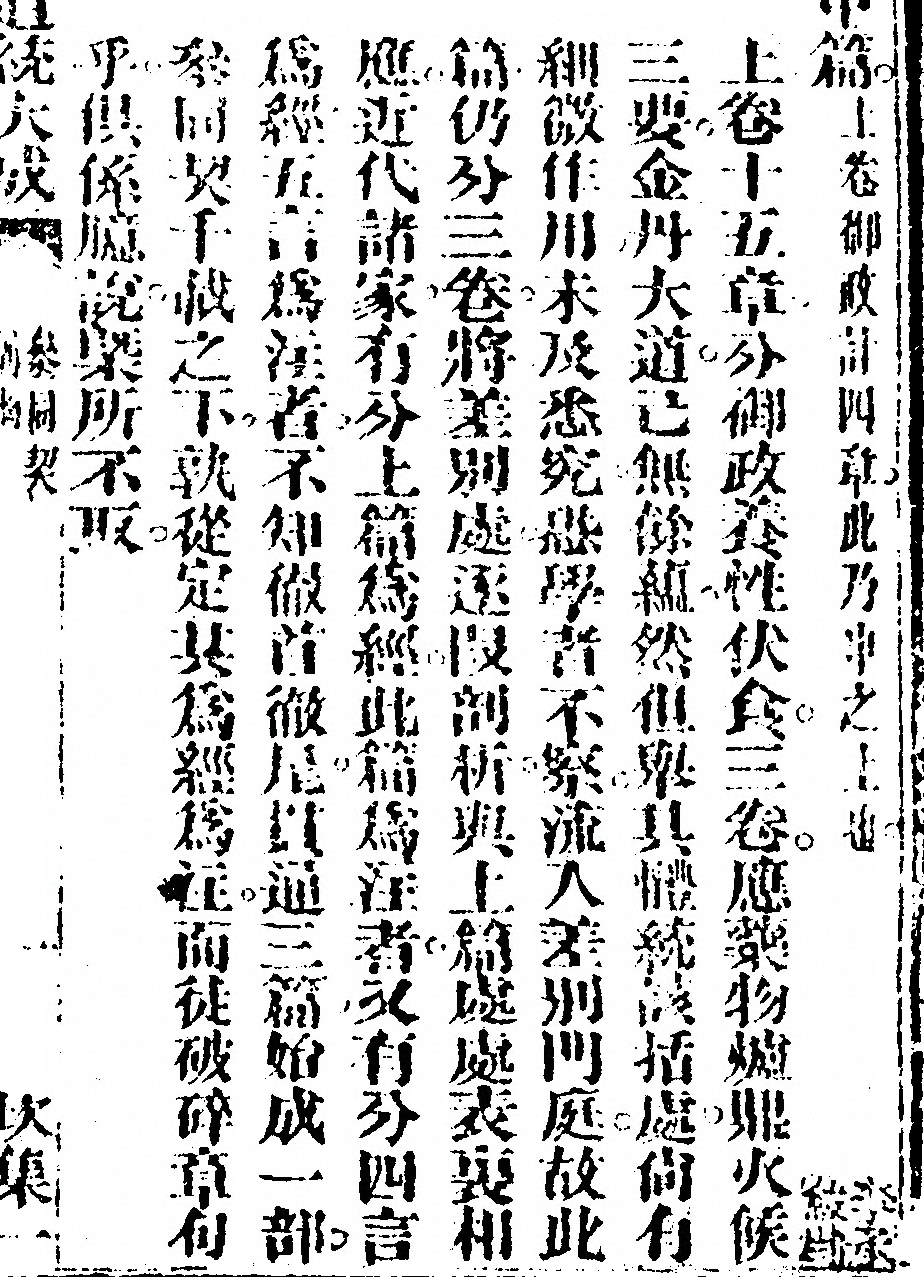 中篇上卷御政計四章此乃中之上也
上卷十五章分御政養性伏食三卷應藥物爐鼎火候
三要金丹大道已無餘蘊然但舉其體統該括處尚有
細微作用未及悉究恐學者不察流入差別門庭故此
篇仍分三卷將差別處逐段剖析與上篇處處表裏相
應近代諸家有分上篇為經此篇為注者又有分四言
為經五言為注者不知徹首徹尾貫通三篇始成一部
參同契千載之下孰從定其為經為注而徒破碎章句
乎俱係臆說槩所不取
道統大成
參同契
次集一